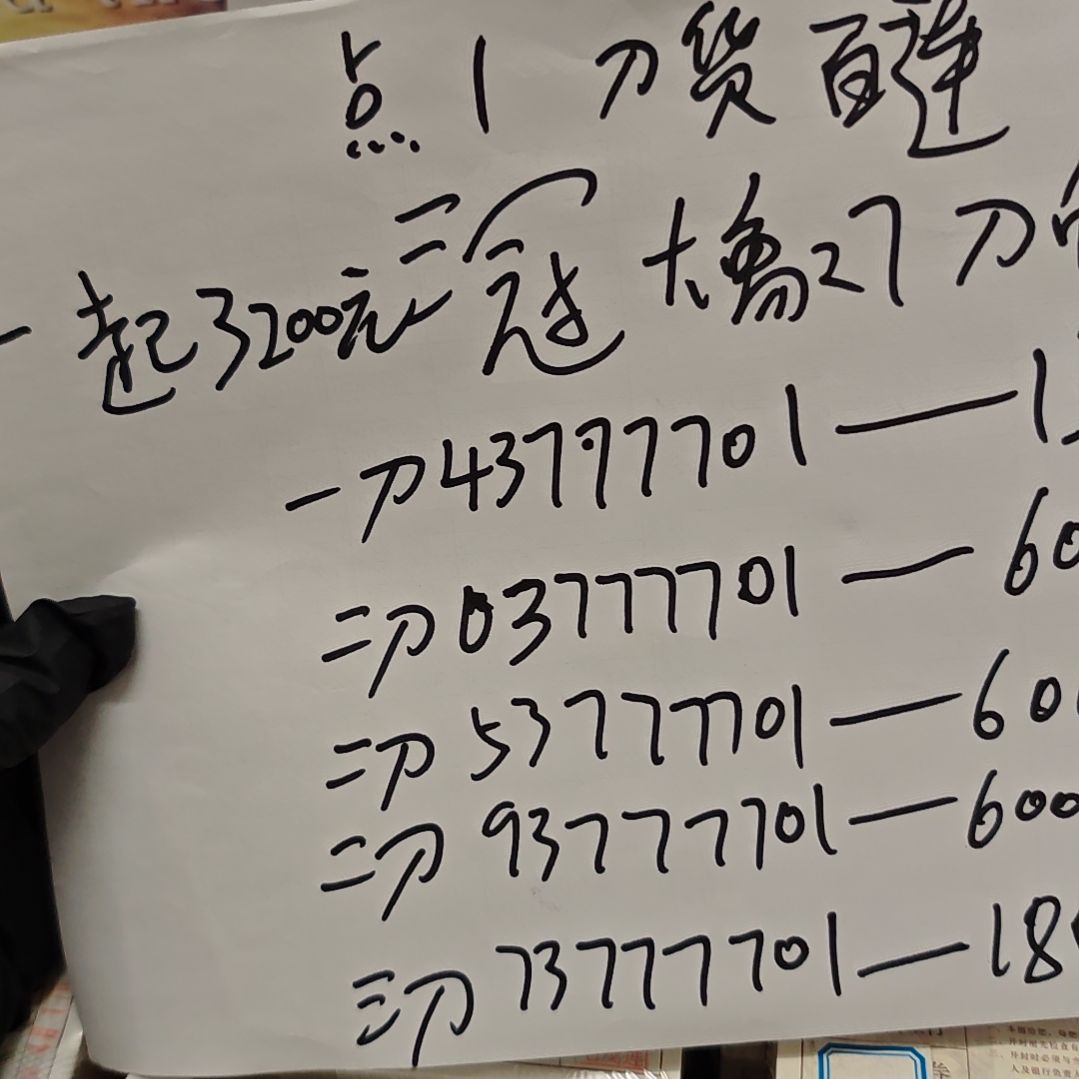 点1 刀货百连
一起3200元
三冠 大 27刀
一刀43777701—1
二刀03777701—60
二刀53777701—60
二刀93777701—600
三刀73777701—18